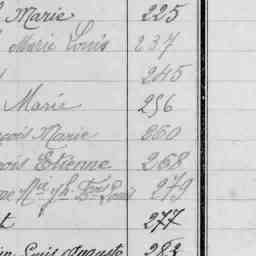 Marie 225
Marie Louis 237
245
Marie 256
Marie 260
Etienne 268
Mie Jh. Fois Louis 279
t 277
Louis Auguste 283